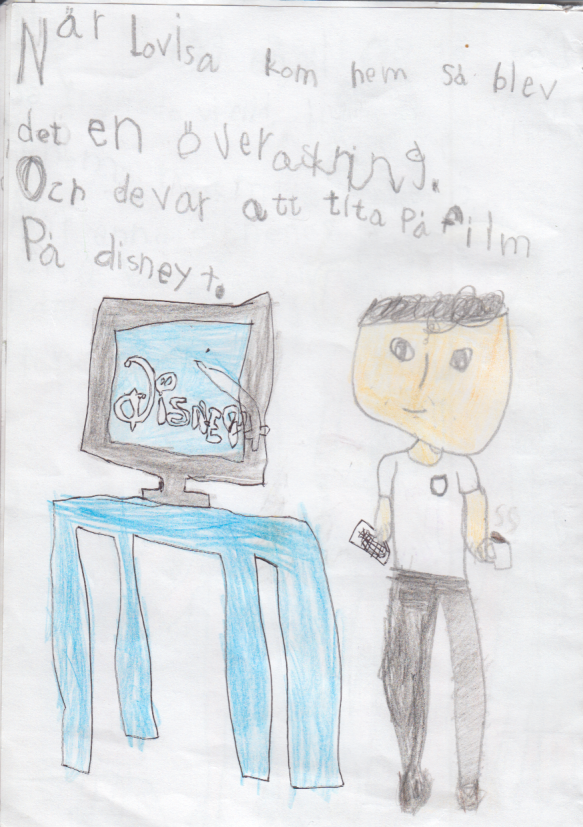 När Lovisa kom hem så blev
det en överaskning.
Och de var att tita på film
På disney+.
Disney+